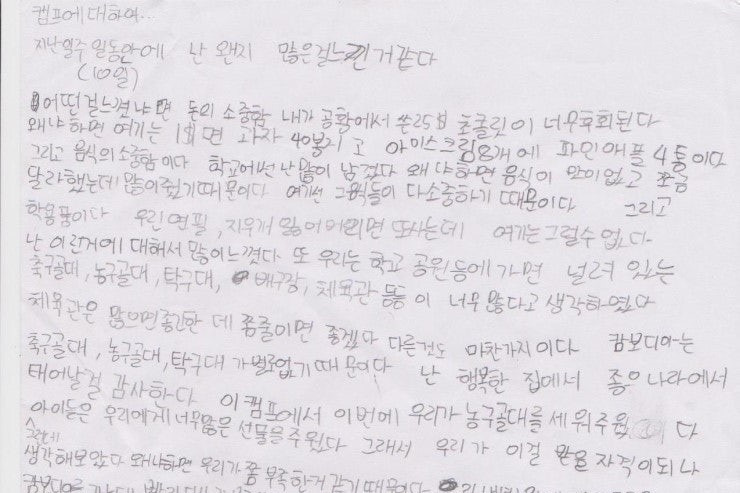 캠프에 대하여...
지난 일주일동안에 난 왠지 많은걸느낀거같다
(10일)
어떤걸느꼈냐면 돈의 소중함 내가 공황에서 쓴25$ 초콜릿이 너무후회된다
왜냐하면 여기는 1$면 과자 40봉지고 아이스크림8개에 파인애플 4통이다
그리고 음식의 소중함이다 학교에선 난 많이 남겼다 왜냐하면 음식이 맛이없고 조금
달라했는데 많이줬기때문이다 여기선 그음식들이 다소중하기 때문이다 그리고
학용품이다 우린 연필, 지우개 잃어버리면 또사는데 여기는그럴수없다
난 이런거에 대해서 많이느꼈다 또 우리는 학교 공원등에가면 널려 있는
축구골대, 농구골대, 탁구대, 배구장, 체육관 등등이 너무많다고 생각하였다
체육관은 많으면좋긴한데 쫌줄이면 좋겠다 다른것도 마찬가지이다 캄보디아는
축구골대, 농구골대, 탁구대가 별로없기때문이다 난 행복한 집에서 좋은나라에서
태어날걸 감사한다 이캠프에서 이번에 우리가 농구골대를 세워주웠다
아이들은 우리에게 너무많은 선물을주웠다 그래서 우리가 이걸 받을 자격이되나
그런데
생각해보았다 왜냐하면 우리가 쫌 부족한거같기때문이다